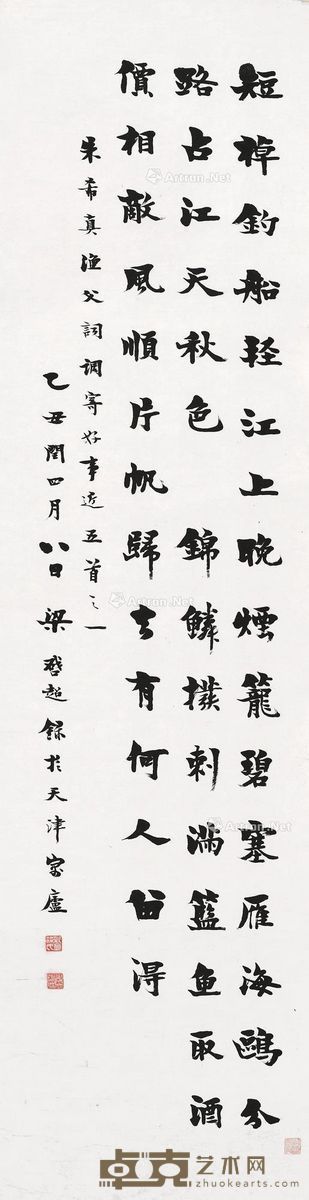 短棹釣船輕江上晚煙籠碧塞雁海鷗分
路占江天秋色　錦鱗撥刺滿籃魚取酒
價相敵風順片帆歸去有何人留得
朱希真漁父詞調寄好事近五首之一
乙丑閏四月八日梁啓超錄於天津寓廬
Artron.Net
Artron.Net
Artron.Net
Artron.Net
卓克艺术网
www.zhuokearts.com